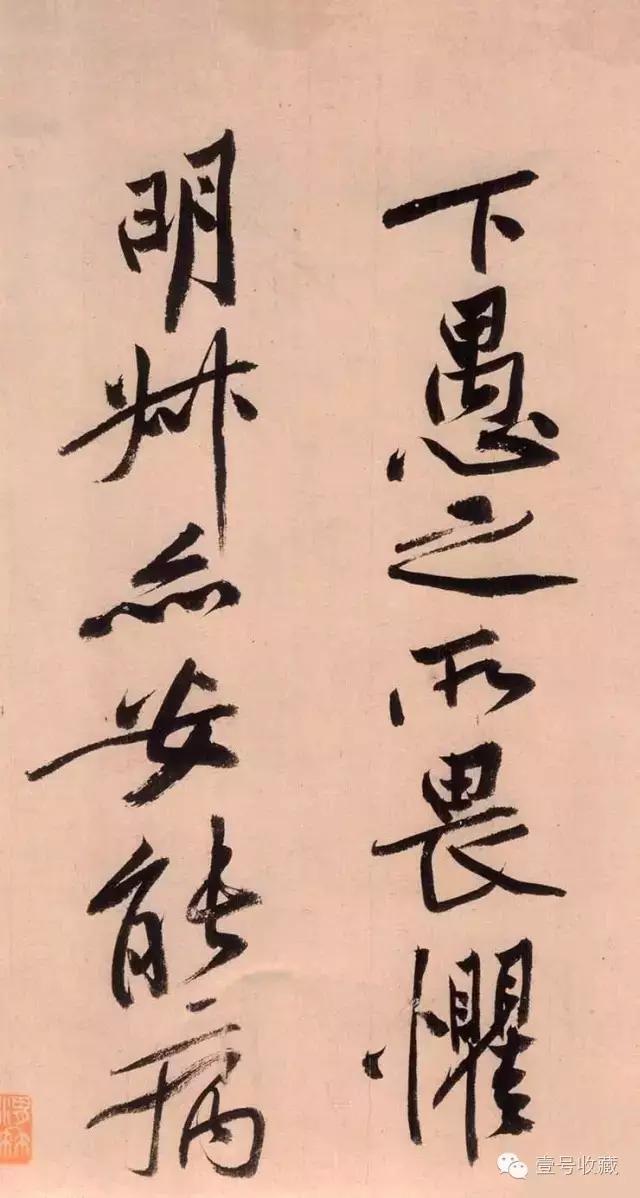 下愚之所畏懼
明亦安能病
壹号收藏